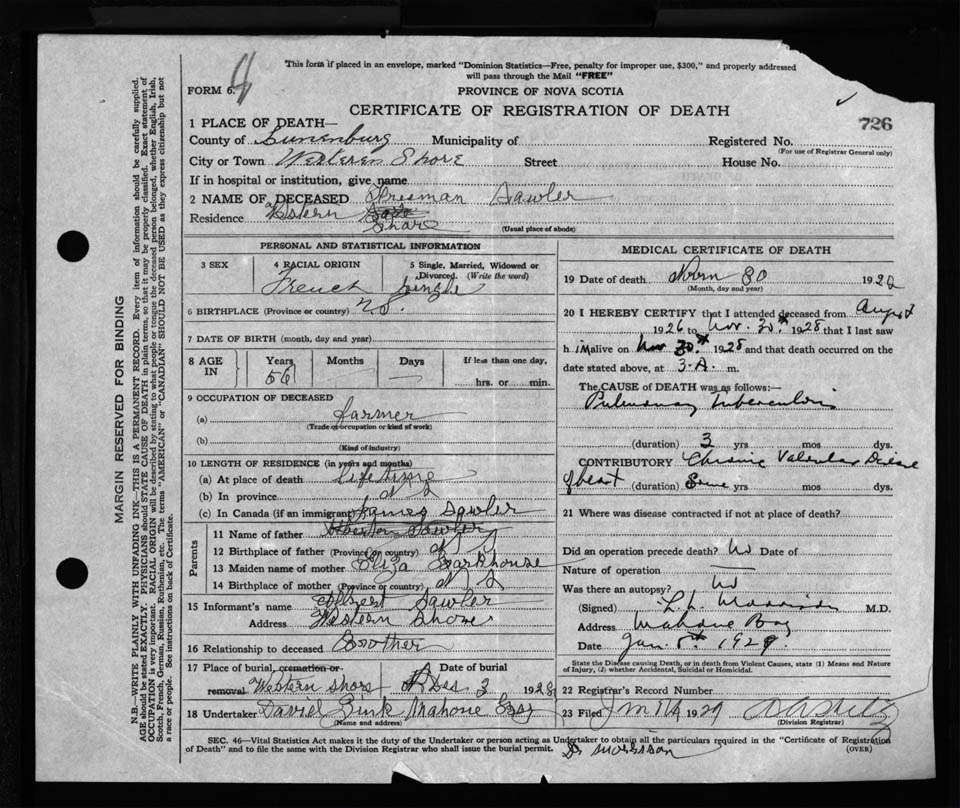 This form if placed in an envelope, marked "Dominion Statistics—Free, penalty for improper use, $300," and properly addressed
will pass through the Mail "FREE"
FORM 6.
PROVINCE OF NOVA SCOTIA
CERTIFICATE OF REGISTRATION OF DEATH
726
1 PLACE OF DEATH—
County of Lunenburg Municipality of Registered No.
(For use of Registrar General only)
City or Town Western Shore Street House No.
If in hospital or institution, give name
2 NAME OF DECEASED Freeman Sawler
Residence Western Shore
(Usual place of abode)
PERSONAL AND STATISTICAL INFORMATION
3 SEX
4 RACIAL ORIGIN French
5 Single, Married, Widowed or Divorced. (Write the word) single
6 BIRTHPLACE (Province or country) N.S.
7 DATE OF BIRTH (month, day and year)
8 AGE IN Years 56 Months — Days — If less than one day, hrs. or min.
9 OCCUPATION OF DECEASED
(a) farmer
(Trade or occupation or kind of work)
(b)
(Kind of industry)
10 LENGTH OF RESIDENCE (in years and months)
(a) At place of death lifetime
(b) In province N S
(c) In Canada (if an immigrant)
Parents
James Sawler
11 Name of father Sawler
12 Birthplace of father (Province or country) N S
13 Maiden name of mother Eliza Barkhouse
14 Birthplace of mother (Province or country) N S
15 Informant's name Albert Sawler
Address Western Shore
16 Relationship to deceased Brother
17 Place of burial, cremation or removal Western Shore Date of burial Dec 3 1928
18 Undertaker David Zink Mahone Bay
(Name and address)
MEDICAL CERTIFICATE OF DEATH
19 Date of death Nov 30 1928
(Month, day and year)
20 I HEREBY CERTIFY that I attended deceased from August
1926 to Nov. 30th 1928 that I last saw
h im alive on Nov 30th 1928 and that death occurred on the
date stated above, at 3 A. m.
The CAUSE OF DEATH was as follows:—
Pulmonary Tuberculosis
(duration) 3 yrs mos dys.
CONTRIBUTORY Chronic Valvular Disease
of heart (duration) Some yrs mos dys.
21 Where was disease contracted if not at place of death?
Did an operation precede death? No Date of
Nature of operation —
Was there an autopsy? No
(Signed) L. L. Morrison M.D.
Address Mahone Bay
Date Jan 5th 1929
State the Disease causing Death, or in death from Violent Causes, state (1) Means and Nature
of Injury, (2) whether Accidental, Suicidal or Homicidal.
22 Registrar's Record Number
23 Filed 1929
(Division Registrar)
SEC. 46—Vital Statistics Act makes it the duty of the Undertaker or person acting as Undertaker to obtain all the particulars required in the "Certificate of Registration
of Death" and to file the same with the Division Registrar who shall issue the burial permit.
(OVER)
Dr Morrison
MARGIN RESERVED FOR BINDING
N.B.—WRITE PLAINLY WITH UNFADING INK—THIS IS A PERMANENT RECORD. Every item of information should be carefully supplied.
AGE should be stated EXACTLY. PHYSICIANS should STATE CAUSE OF DEATH in plain terms, so that it may be properly classified. Exact statement of
OCCUPATION is very important. RACIAL ORIGIN will be described by stating to what people or tongue the deceased person belonged, whether English, Irish,
Scotch, French, German, Russian, Ruthenian, etc. The terms "AMERICAN" or "CANADIAN" SHOULD NOT BE USED as they express citizenship but not
a race or people. See instructions on back of Certificate.